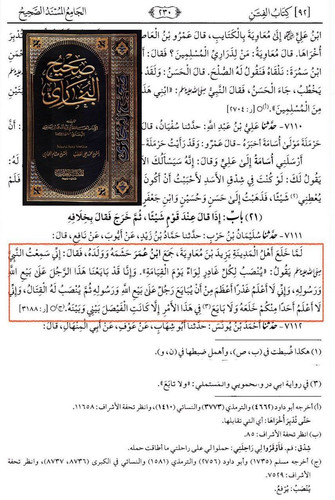 [٩٢] كِتَابُ الفِتَنِ
٢٣٠
الجَامِعُ المُسْنَدُ الصَّحِيحُ
ابْنُ عَلِيٍّ
إِلَى مُعَاوِيَةَ بِالْكَتَائِبِ، قَالَ عَمْرُو
مُعَاوِيَةُ: مَنْ لِذَرَارِيِّ الْمُسْلِمِينَ؟ فَقَالَ:
ابْنُ سَمُرَةَ: نَلْقَاهُ فَنَقُولُ لَهُ: الصُّلْحَ. قَالَ الْحَسَنُ: وَلَقَدْ
يَخْطُبُ، جَاءَ الْحَسَنُ، فَقَالَ النَّبِيُّ
مِنَ الْمُسْلِمِينَ».
[ر: ٢٧٠٤]
صحيح البخاري
٧١١٠- حَدَّثَنَا عَلِيُّ بْنُ عَبْدِ اللَّهِ: حَدَّثَنَا سُفْيَانُ، قَالَ:
حَرْمَلَةَ مَوْلَى أُسَامَةَ أَخْبَرَهُ - قَالَ عَمْرٌو: وَقَدْ رَأَيْتُ حَرْمَلَةَ -
أَرْسَلَنِي أُسَامَةُ إِلَى عَلِيٍّ، وَقَالَ: إِنَّهُ سَيَسْأَلُكَ
يَقُولُ لَكَ: لَوْ كُنْتَ فِي شِدْقِ الْأَسَدِ لَأَحْبَبْتُ أَنْ
شَيْئًا، فَذَهَبْتُ إِلَى حَسَنٍ وَحُسَيْنٍ وَابْنِ جَعْفَرٍ
(٢١) بَابٌ: إِذَا قَالَ عِنْدَ قَوْمٍ شَيْئًا، ثُمَّ خَرَجَ فَقَالَ بِخِلَافِهِ
٧١١١- حَدَّثَنَا سُلَيْمَانُ بْنُ حَرْبٍ: حَدَّثَنَا حَمَّادُ بْنُ زَيْدٍ، عَنْ أَيُّوبَ، عَنْ نَافِعٍ، قَالَ:
لَمَّا خَلَعَ أَهْلُ الْمَدِينَةِ يَزِيدَ بْنَ مُعَاوِيَةَ، جَمَعَ ابْنُ عُمَرَ حَشَمَهُ وَوَلَدَهُ، فَقَالَ: إِنِّي سَمِعْتُ النَّبِيَّ
صلى الله عليه وسلم يَقُولُ: «يُنْصَبُ لِكُلِّ غَادِرٍ لِوَاءٌ يَوْمَ الْقِيَامَةِ». وَإِنَّا قَدْ بَايَعْنَا هَذَا الرَّجُلَ عَلَى بَيْعِ اللَّهِ
وَرَسُولِهِ، وَإِنِّي لَا أَعْلَمُ غَدْرًا أَعْظَمَ مِنْ أَنْ يُبَايَعَ رَجُلٌ عَلَى بَيْعِ اللَّهِ وَرَسُولِهِ ثُمَّ يُنْصَبُ لَهُ الْقِتَالُ، وَإِنِّي
لَا أَعْلَمُ أَحَدًا مِنْكُمْ خَلَعَهُ وَلَا بَايَعَ(٣) فِي هَذَا الْأَمْرِ إِلَّا كَانَتِ الْفَيْصَلَ بَيْنِي وَبَيْنَهُ. [ر: ٣١٨٨]
٧١١٢- حَدَّثَنَا أَحْمَدُ بْنُ يُونُسَ: حَدَّثَنَا أَبُو شِهَابٍ، عَنْ عَوْفٍ، عَنْ أَبِي الْمِنْهَالِ، قَالَ:
(١) هكذا ضُبطت في (ب، ص)، وأهمل ضبطها في (ن، و).
(٣) في رواية أبي ذر والحمويي والمستملي: «ولا تابَعَ».
(أ) أخرجه أبو داود (٤٦٦٢) والترمذي (٣٧٧٣) والنسائي (١٤١٠)، وانظر تحفة الأشراف: ١١٦٥٨.
حَتَّى تُدْبِرَ أُخْرَاهَا: أي التي تقابلها.
(ب) انظر تحفة الأشراف: ٨٥.
شِدْق: فم. فأوْقَروا لي راحلتي: حملوا لي على راحلتي ما أطاقت حمله.
(ج) أخرجه مسلم (١٧٣٥) وأبو داود (٢٧٥٦) والترمذي (١٥٨١) والنسائي في الكبرى (٨٧٣٦، ٨٧٣٧)، وانظر تحفة
يُنْصَبُ: يُرْفَعُ.